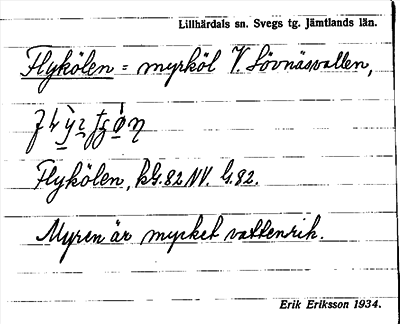 Lillhärdals sn. Svegs tg. Jämtlands län.
Flykölen = myrköl V Lövnäsvallen,
Flykölen, kG. 82 NV. G. 82.
Myren är mycket vattenrik.
Erik Eriksson 1934.